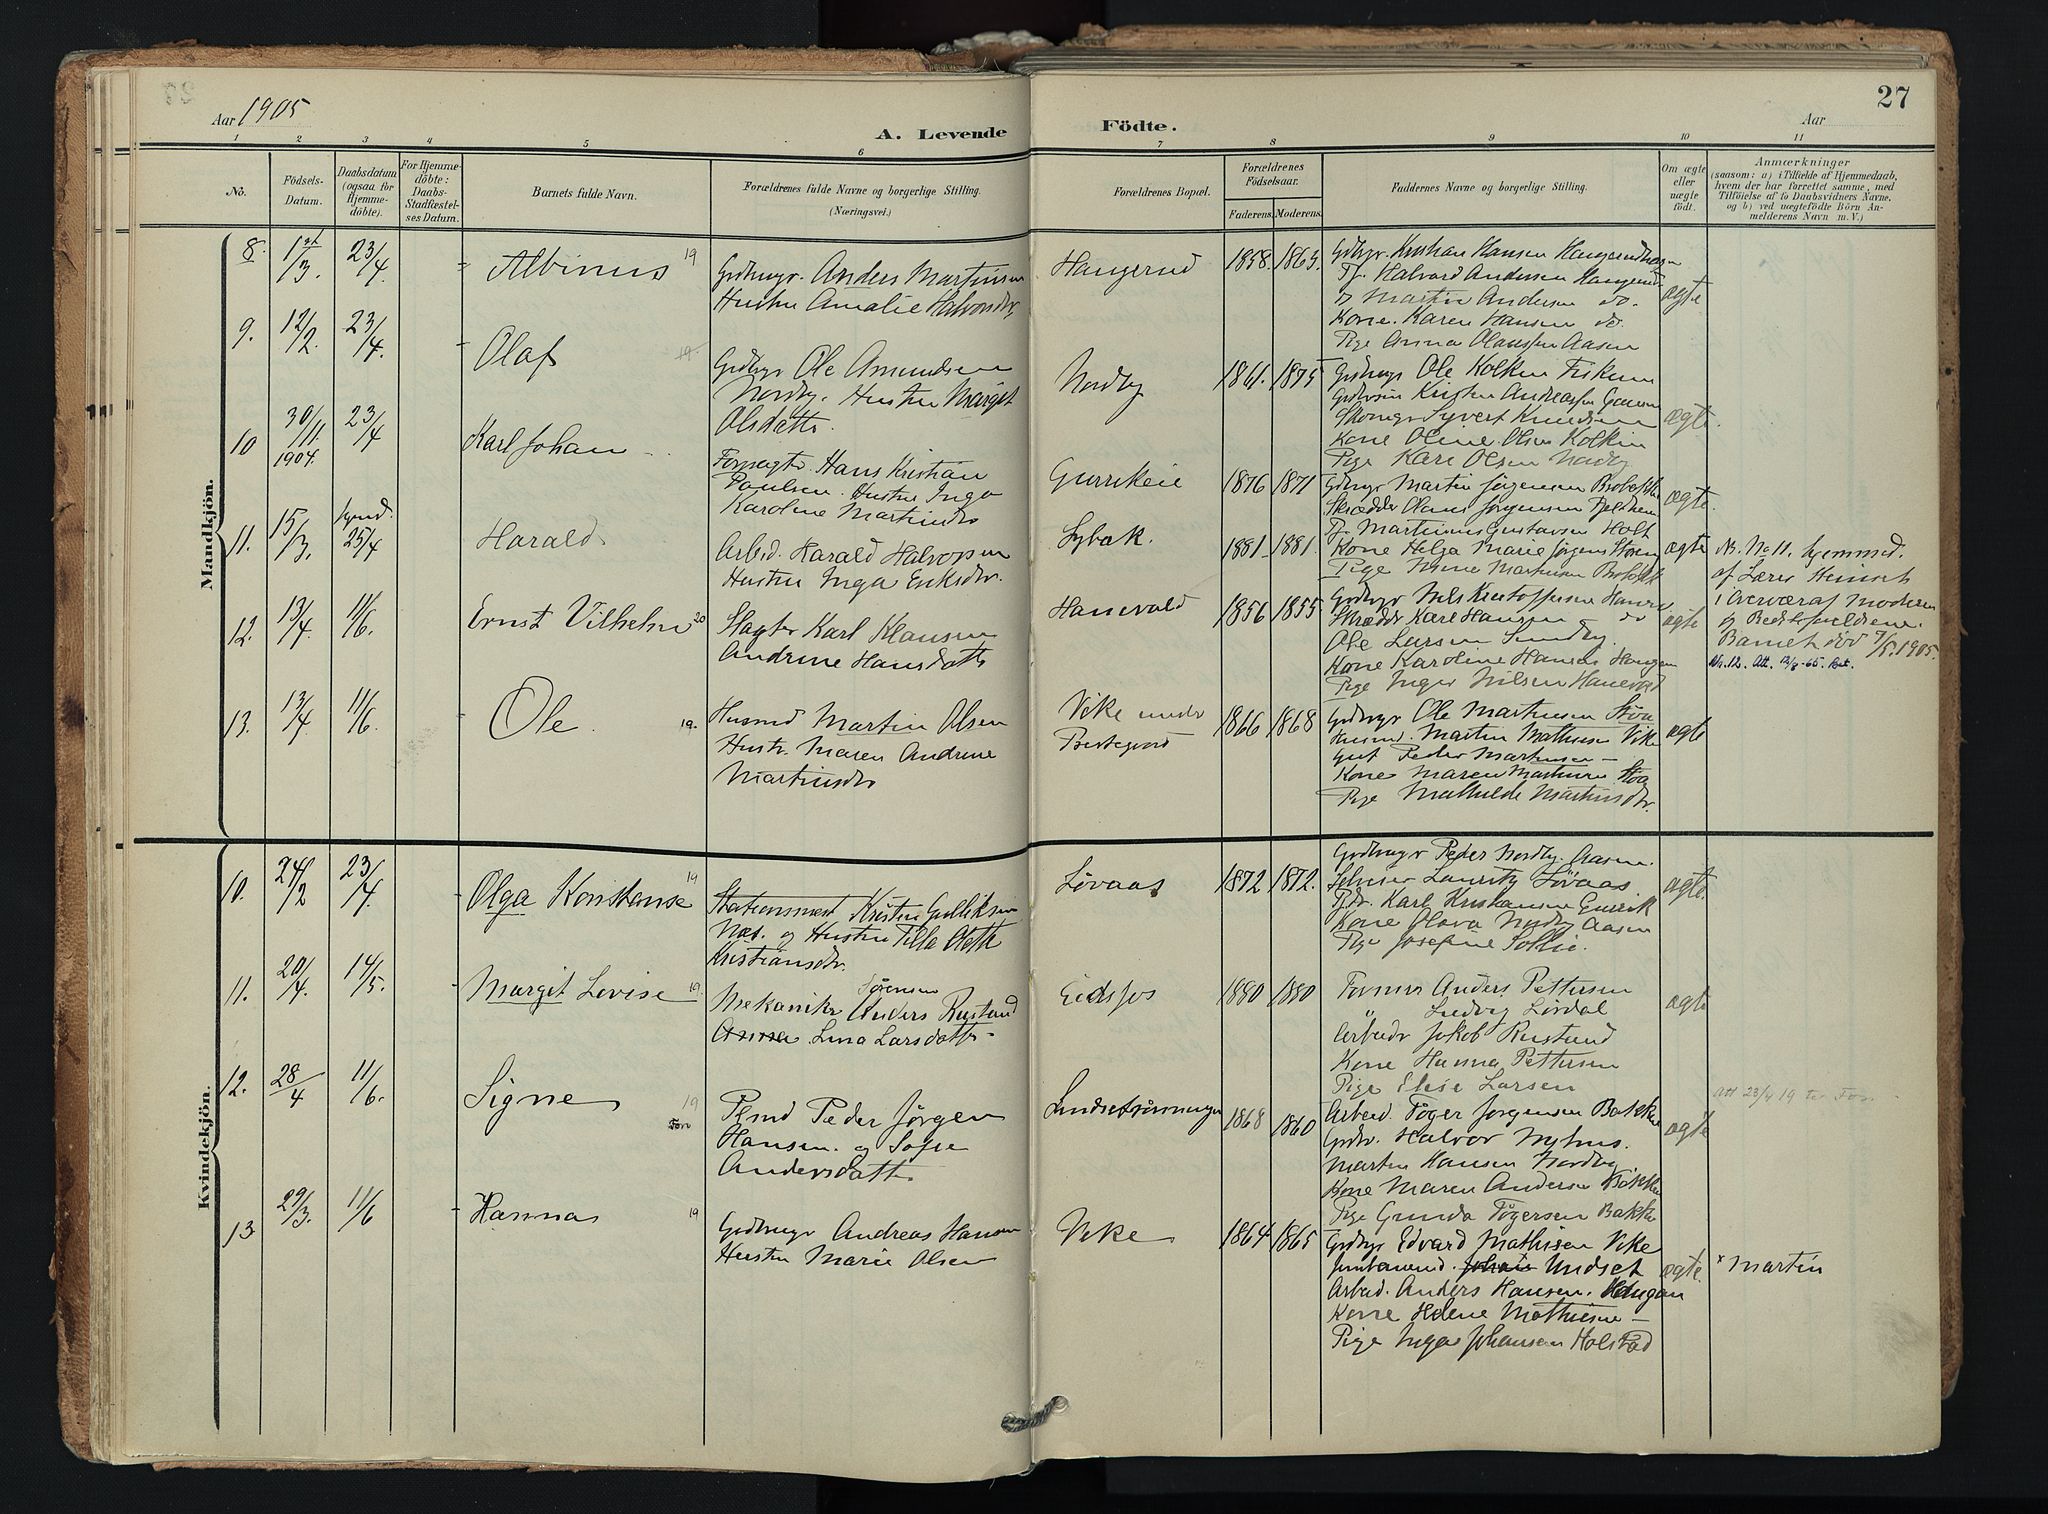 27
Aar 1905
A. Levende Födte.
Aar
1 2 3 4 5 6 7 8 9 10 11
No.
Födsels-Datum.
Daabsdatum (ogsaa for Hjemme-döbte).
For Hjemme-döbte: Daabs-Stadfæstel-ses Datum.
Barnets fulde Navn.
Forældrenes fulde Navne og borgerlige Stilling. (Næringsvei.)
Forældrenes Bopæl.
Forældrenes Födselsaar.
Faderens. Moderens.
Faddernes Navne og borgerlige Stilling.
Om ægte eller uægte født.
Anmærkninger
(saasom: a) i Tilfælde af Hjemmedaab,
hvem der har forrettet samme, med
Tilföielse af to Daabsvidners Navne,
og b) ved uægtefödte Börn An-
melderens Navn m. V.)
Mandkjön.
8. 1/3. 23/4. - Albinus 19
Grdbrugr. Anders Martinsen
Hustru Amalie Halvorsdtr.
Haugerud 1858. 1863.
Grdbrgr Kristian Hansen
Tj. Halvard Andersen Haugerud
Martin Andersen do.
Kone Karen Hansen do.
Pige Anna Olaussen Aasen
ægte
9. 12/2. 23/4. - Olaf 19.
Grdbrgr Ole Amundsen
Nordby. Hustru Marget
Olsdattr.
Nordby 1861. 1875
Grdbrugr Ole Kolkin Fiskum
Kristen Andreassen
Syvert Knudsen
Kone Oline Olsen Kolkin
Pige Kari Olsen Nordby
ægte.
10 30/11. 1904. 23/4 Karl Johan
Forpagtr. Hans Kristian
Paulsen. Hustru Inga
Karoline Martinsdtr
1876 1871
Grdbrgr Martin Jörgensen
Skrædder Olaus Jörgensen
Tj. Martinius Gustavsen Holt
Kone Helga Marie Jörgens
Pige
ægte.
11. 15/3. hjmd. 25/4 Harald
Arbeid. Harald Halvorsen
Hustru Inga Eriksdtr.
1881. 1881.
ægte
Nr. No 11. hjemmed.
af Lærer
i Overvær af Moderen
og Bedsteforældrene.
Barnet död 7/5. 1905.
12. 13/4. 11/6. Ernst Vilhelm 20
Slagter Karl Klausen
Andrine Hansdattr
Hanevald 1856 1855
Grdbrgr Nils Kristoffersen
Skrædder Karl Hansen do
Ole Larsen Sundby.
Kone Karoline Hansen
Pige Inger Nilsen Hanevald
ægte
Nr. 12. Att. 12/8-65.
13. 13/4 11/6. Ole. 19.
Husmd Martin Olsen
Hustr. Maren Andrine
Martinsdtr
Vike under
Prestegard
1866 1868
Grdbrgr Ole Martinsen Stöa
Husmd. Martin Mathisen Vike
Gut Peder Martinsen -
Kone Maren Martinsen Stöa
Pige Mathilde Martinsdtr.
ægte
Kvindekjön.
10. 24/2 23/4. - Olga Konstanse 19
Stationsmest Kristen Gulliksen
Næs. og Hustru Tilla Oleth
Kristiansdtr.
Lövaas 1872 1872.
Grdbrugr Peder Nordby. Aasen.
Lauritz Lövaas.
Karl Kristiansen
Kone Olava Nordby Aasen
Pige Josefine Sollie.
ægte.
11. 20/4. 14/5. - Margit Lovise 19.
Sörensen
Mekanikr Anders Rustand
Lina Larsdattr.
Eidsfos 1880 1880
Former Anders Pettersen
" Ludvig Lördal
Arbeidr Jakob Rustand
Kone Hanna Pettersen
Pige Elise Larsen
ægte
12. 28/4 11/6. - Signe 19
Plsmd Peder Jörgen
Hansen. og Sofie
Andersdattr.
1868 1860
Arbeid. Töger Jörgensen Bakke
Grdbr. Halvor Nyhus.
Martin Hansen Nordby
Kone Maren Andersen
Pige Gunda Tögersen Bakke
ægte
Att 23/4 19
13 29/3. 11/6 - Hanna 19
Grdbrugr Andreas Hansen
Hustru Marie Olsen
Vike 1864 1865
Grdbrgr Edvard Mathisen Vike
Johan Undset
Arbeid. Anders Hansen. Haugan
Kone Helene Mathisen -
Pige Inga Johansen Holstad
ægte.
x Martin